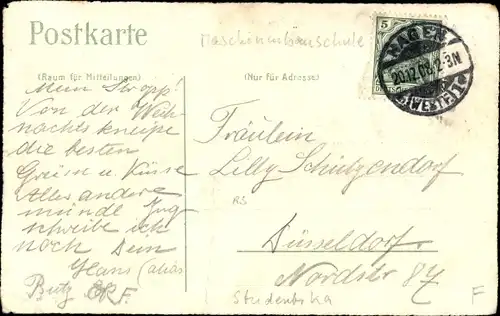 Postkarte
Maschinenbauschule
5
HAGEN
20.12.08.2-3N
(WESTF.) 1
(Raum für Mitteilungen)
(Nur für Adresse)
Mein Stropp!
Von der Weih-
nachtskneipe
die besten
Grüsse u. Küsse
Alles andere
mündl.
schreibe ich
noch Dein
Hans (alias
Butz
Fräulein
Lilly Schützendorf
RS
Düsseldorf
Nordstr 87
Studentika
F